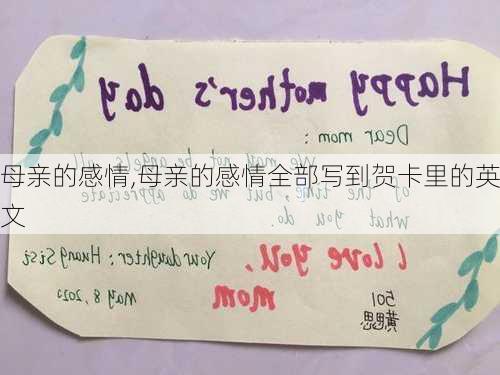 Happy mother's day
Dear mom:
We may not be angels all
母亲的感情,母亲的感情全部写到贺卡里的英
文
of the time, but we do appreciate
what you do.
I love you,
mom
Your daughter: Huang Sisi
May 8, 2022
501
黄思思